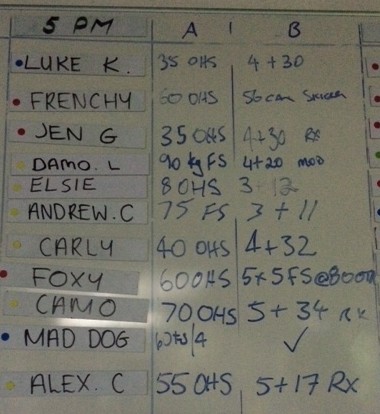 5 PM A | B
LUKE K. 35 OHS 4 + 30
FRENCHY 60 OHS
JEN G 35 OHS 4+30 RX
DAMO. L 90 kg FS 4+20 mod
ELSIE 8 OHS 3
ANDREW. C 75 FS 3 + 11
CARLY 40 OHS 4+32
FOXY 60 OHS 5+5 FS @
CAMO 70 OHS 5 + 34 RX
MAD DOG ✓
ALEX. C 55 OHS 5+17 RX